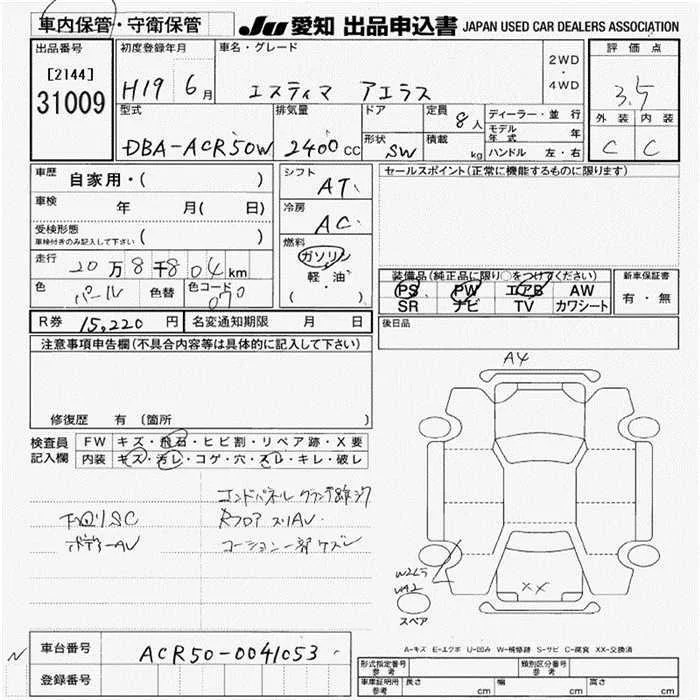 車内保管・守衛保管
JU 愛知 出品申込書 JAPAN USED CAR DEALERS ASSOCIATION
出品番号
[2144]
31009
初度登録年月
H19 6月
車名・グレード
エスティマ アエラス
2WD
・
4WD
評価点
3.5
外装 内装
C C
型式
DBA-ACR50W
排気量
2400cc
ドア
形状
SW
定員 8人
積載 kg
ディーラー・並行
モデル年式 年
ハンドル 左・右
車歴 自家用・( )
車検 年 月( 日)
受検形態
車検付きのみ記入して下さい ( )
走行
20万8千804km
色 パール 色替 色コード 070
シフト
AT
冷房
AC
燃料
ガソリン
軽・油
( )
セールスポイント(正常に機能するものに限ります)
装備品(純正品に限り○をつけてください)
PS PW エアB AW
SR ナビ TV カワシート
新車保証書
有・無
R券 15,220円 名変通知期限 月 日
後日品
注意事項申告欄(不具合内容等は具体的に記入して下さい)
修復歴 有 〔箇所 〕
検査員記入欄
FW キズ・飛石・ヒビ割・リペア跡・X要
内装 キズ・汚レ・コゲ・穴・スレ・キレ・破レ
下回リSC
ボデーAV
Rフロア スリAV
コーション一部ケズレ
A4
W2L5
U42
XX
スペア
A-キズ E-エクボ U-凹み W-補修跡 S-サビ C-腐食 XX-交換済
車台番号 ACR50-0041053
登録番号
N
形式指定番号
参考
類別区分番号
参考
車庫証明用
参考
長さ cm 幅 cm 高さ cm